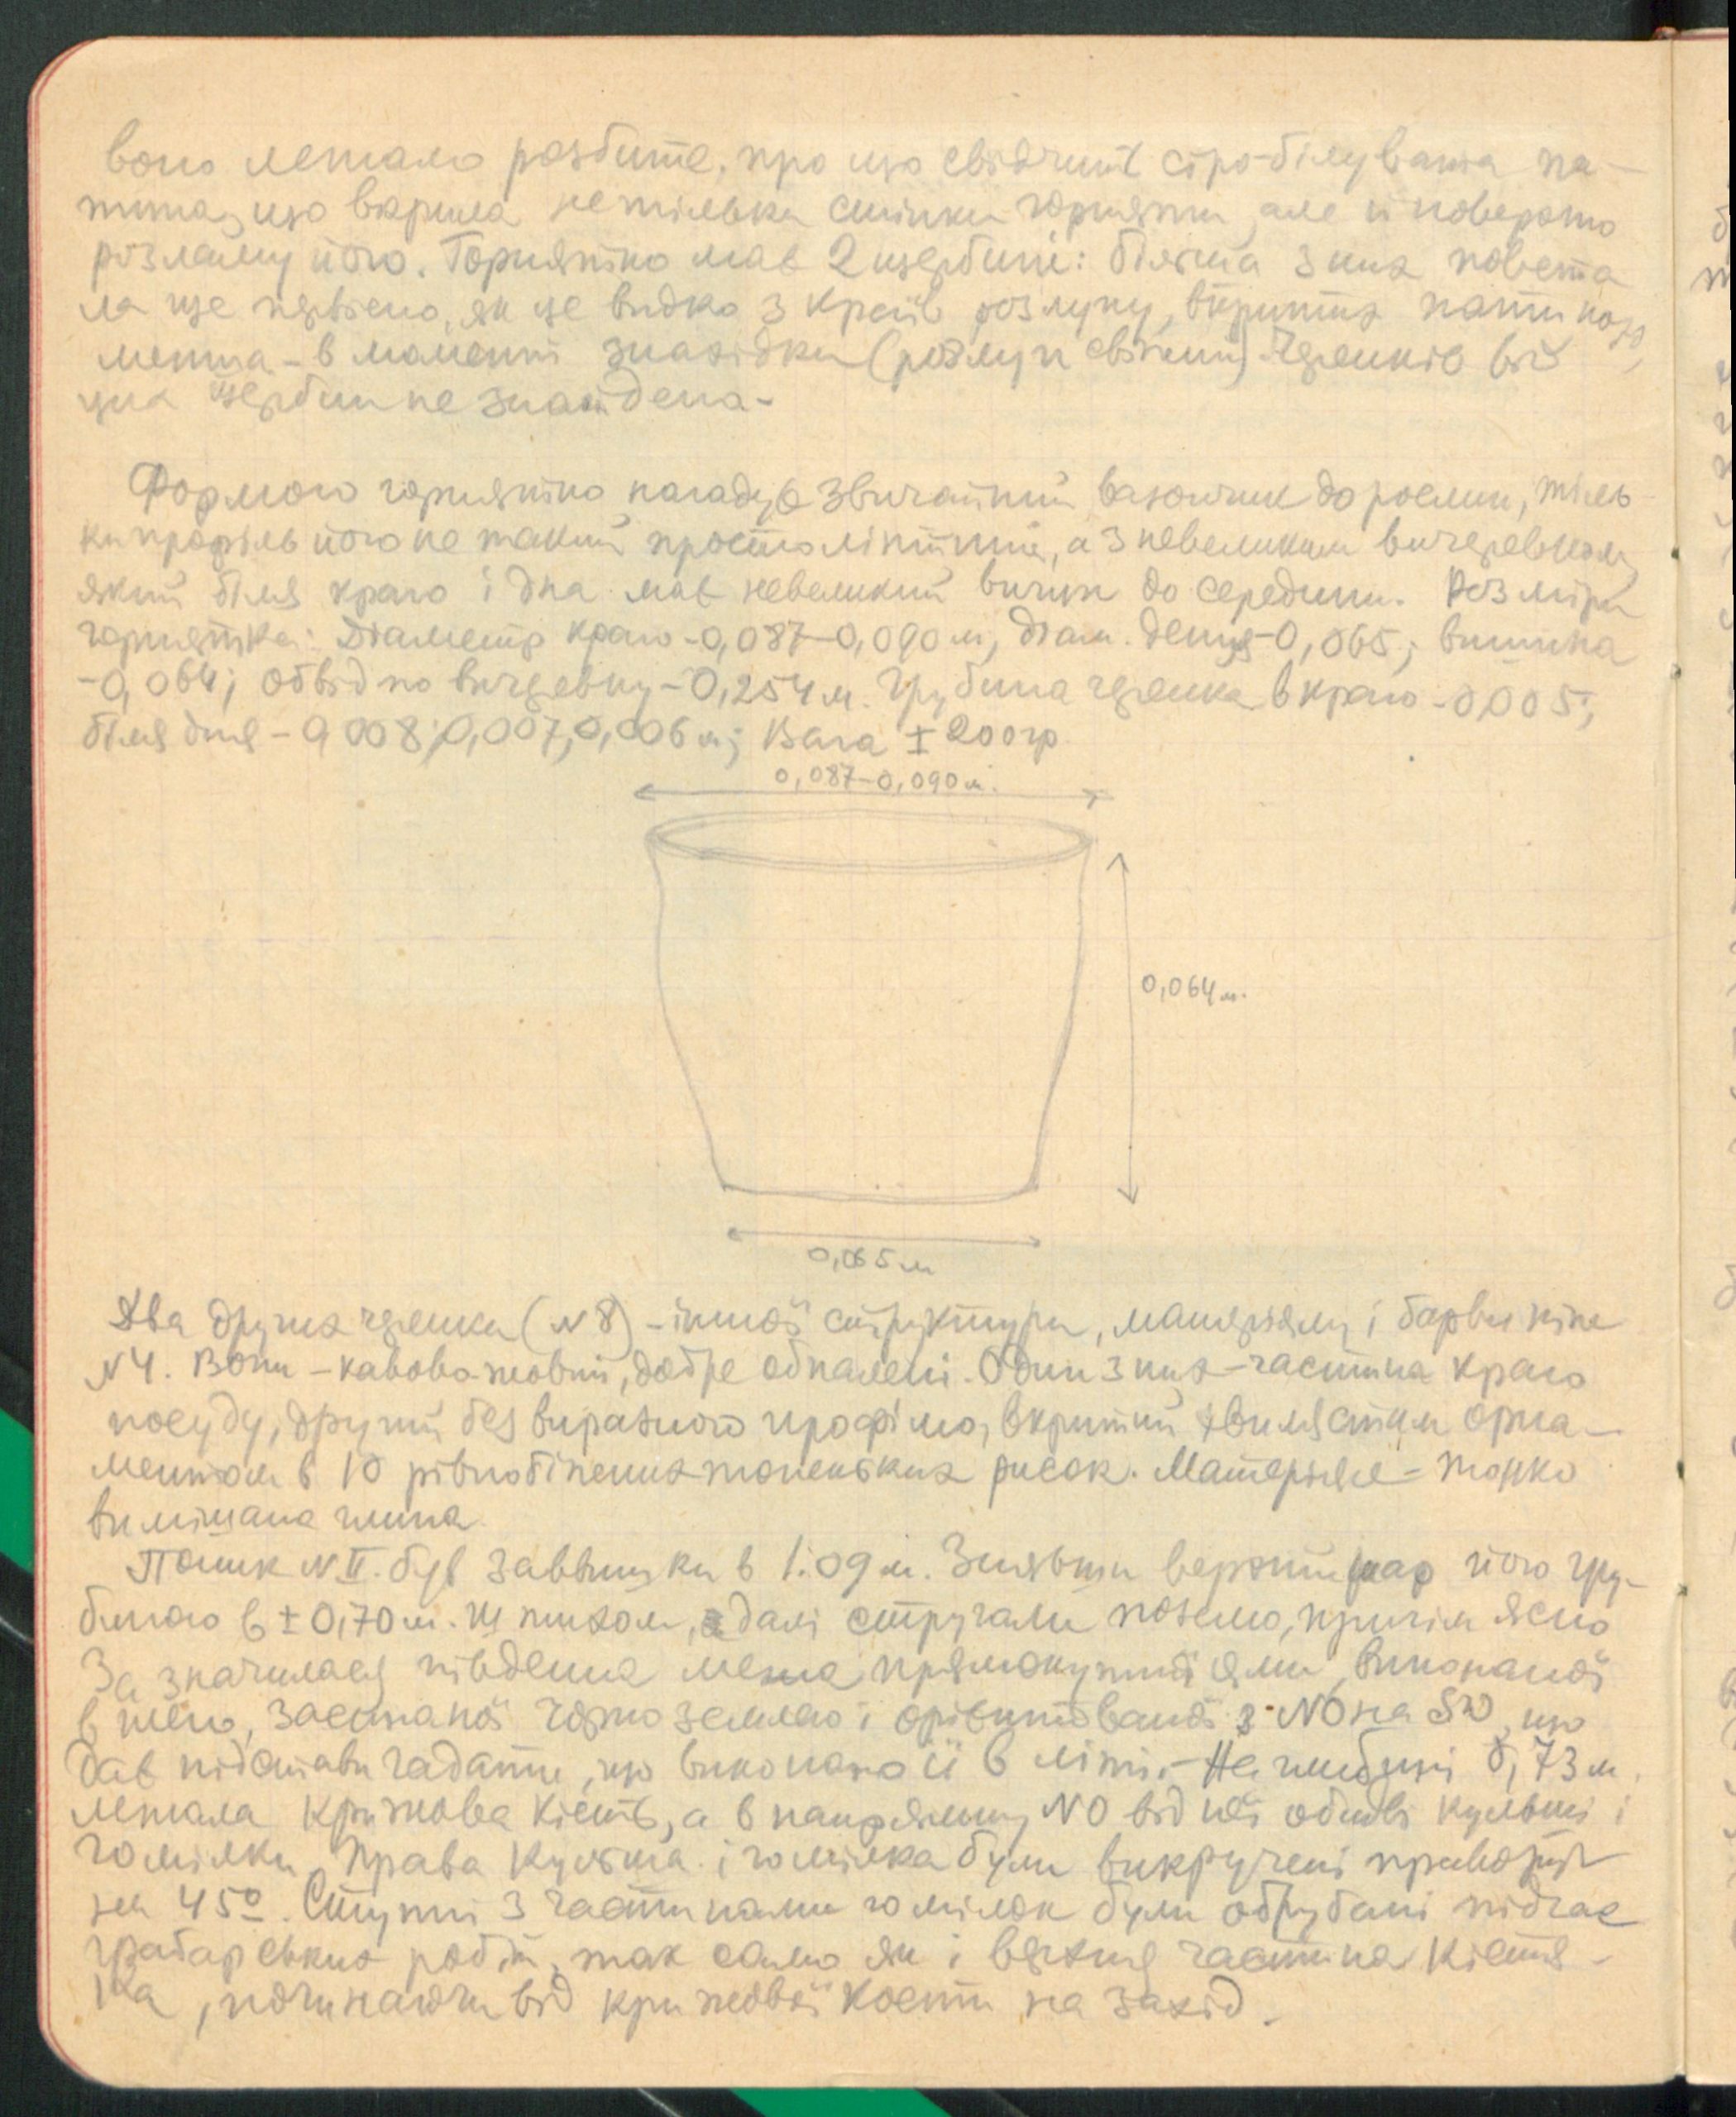 воно лежало розбите, про що свідчить сіро-білувата па-
тина, що вкрила не тільки стінки горнятти, але й поверхню
розламу його. Горнятко має 2 щербини: більша з них повста
ла ще первісно, як це видко з країв розлупу, вкритих патиною,
менша - в моменті знахідки (розлуп свіжий). Черепків від
цих щербин не знайдено -
Формою горнятко нагадує звичайний вазончик до рослин, тіль-
ки профіль його не такий простолінійний, а з невеликим вичеревком,
який біля краю і дна має невеликий вигин до середини. Розміри
горнятка: Діаметр краю - 0,087-0,090 м, діам. денця - 0,065; вишина
- 0,064; обвід по вичеревку - 0,254 м. Грубина черепка в краю - 0,005;
біля дна - 0,008; 0,007; 0,006 м; Вага ± 200 гр
0,087-0,090 м.
0,064 м.
0,065 м
Два других черепки (№ 8) - іншої структури, матеріялу і барви ніж
№ 4. Вони - кавово-жовті, добре обпалені. Один з них - частина краю
посуду, другий без виразного профілю, вкритий хвилястим орна-
ментом в 10 рівнобіжних тоненьких рисок. Матеріял - тонко
вимішана глина.
Пошук № II. був заввишки в 1.09 м. Знявши верхній шар його гру-
биною в ± 0,70 м. шпихом, далі стругали поземо, причім ясно
зазначилася південна межа прямокутної ями, виконаної
в лесі, засипаної чорноземлею і орієнтованої з NO на SW, що
дає підстави гадати, що виконано її в літі. - На глибині 0,73 м.
лежала крижова кість, а в напрямку NO від неї обидві кульші і
гомілки. Права кульша і гомілка були викручені
на 45°. Ступні з частинами гомілок були обрубані підчас
грабарських робіт, так само як і верхня частина кістя-
ка, починаючи від крижової кости на захід.